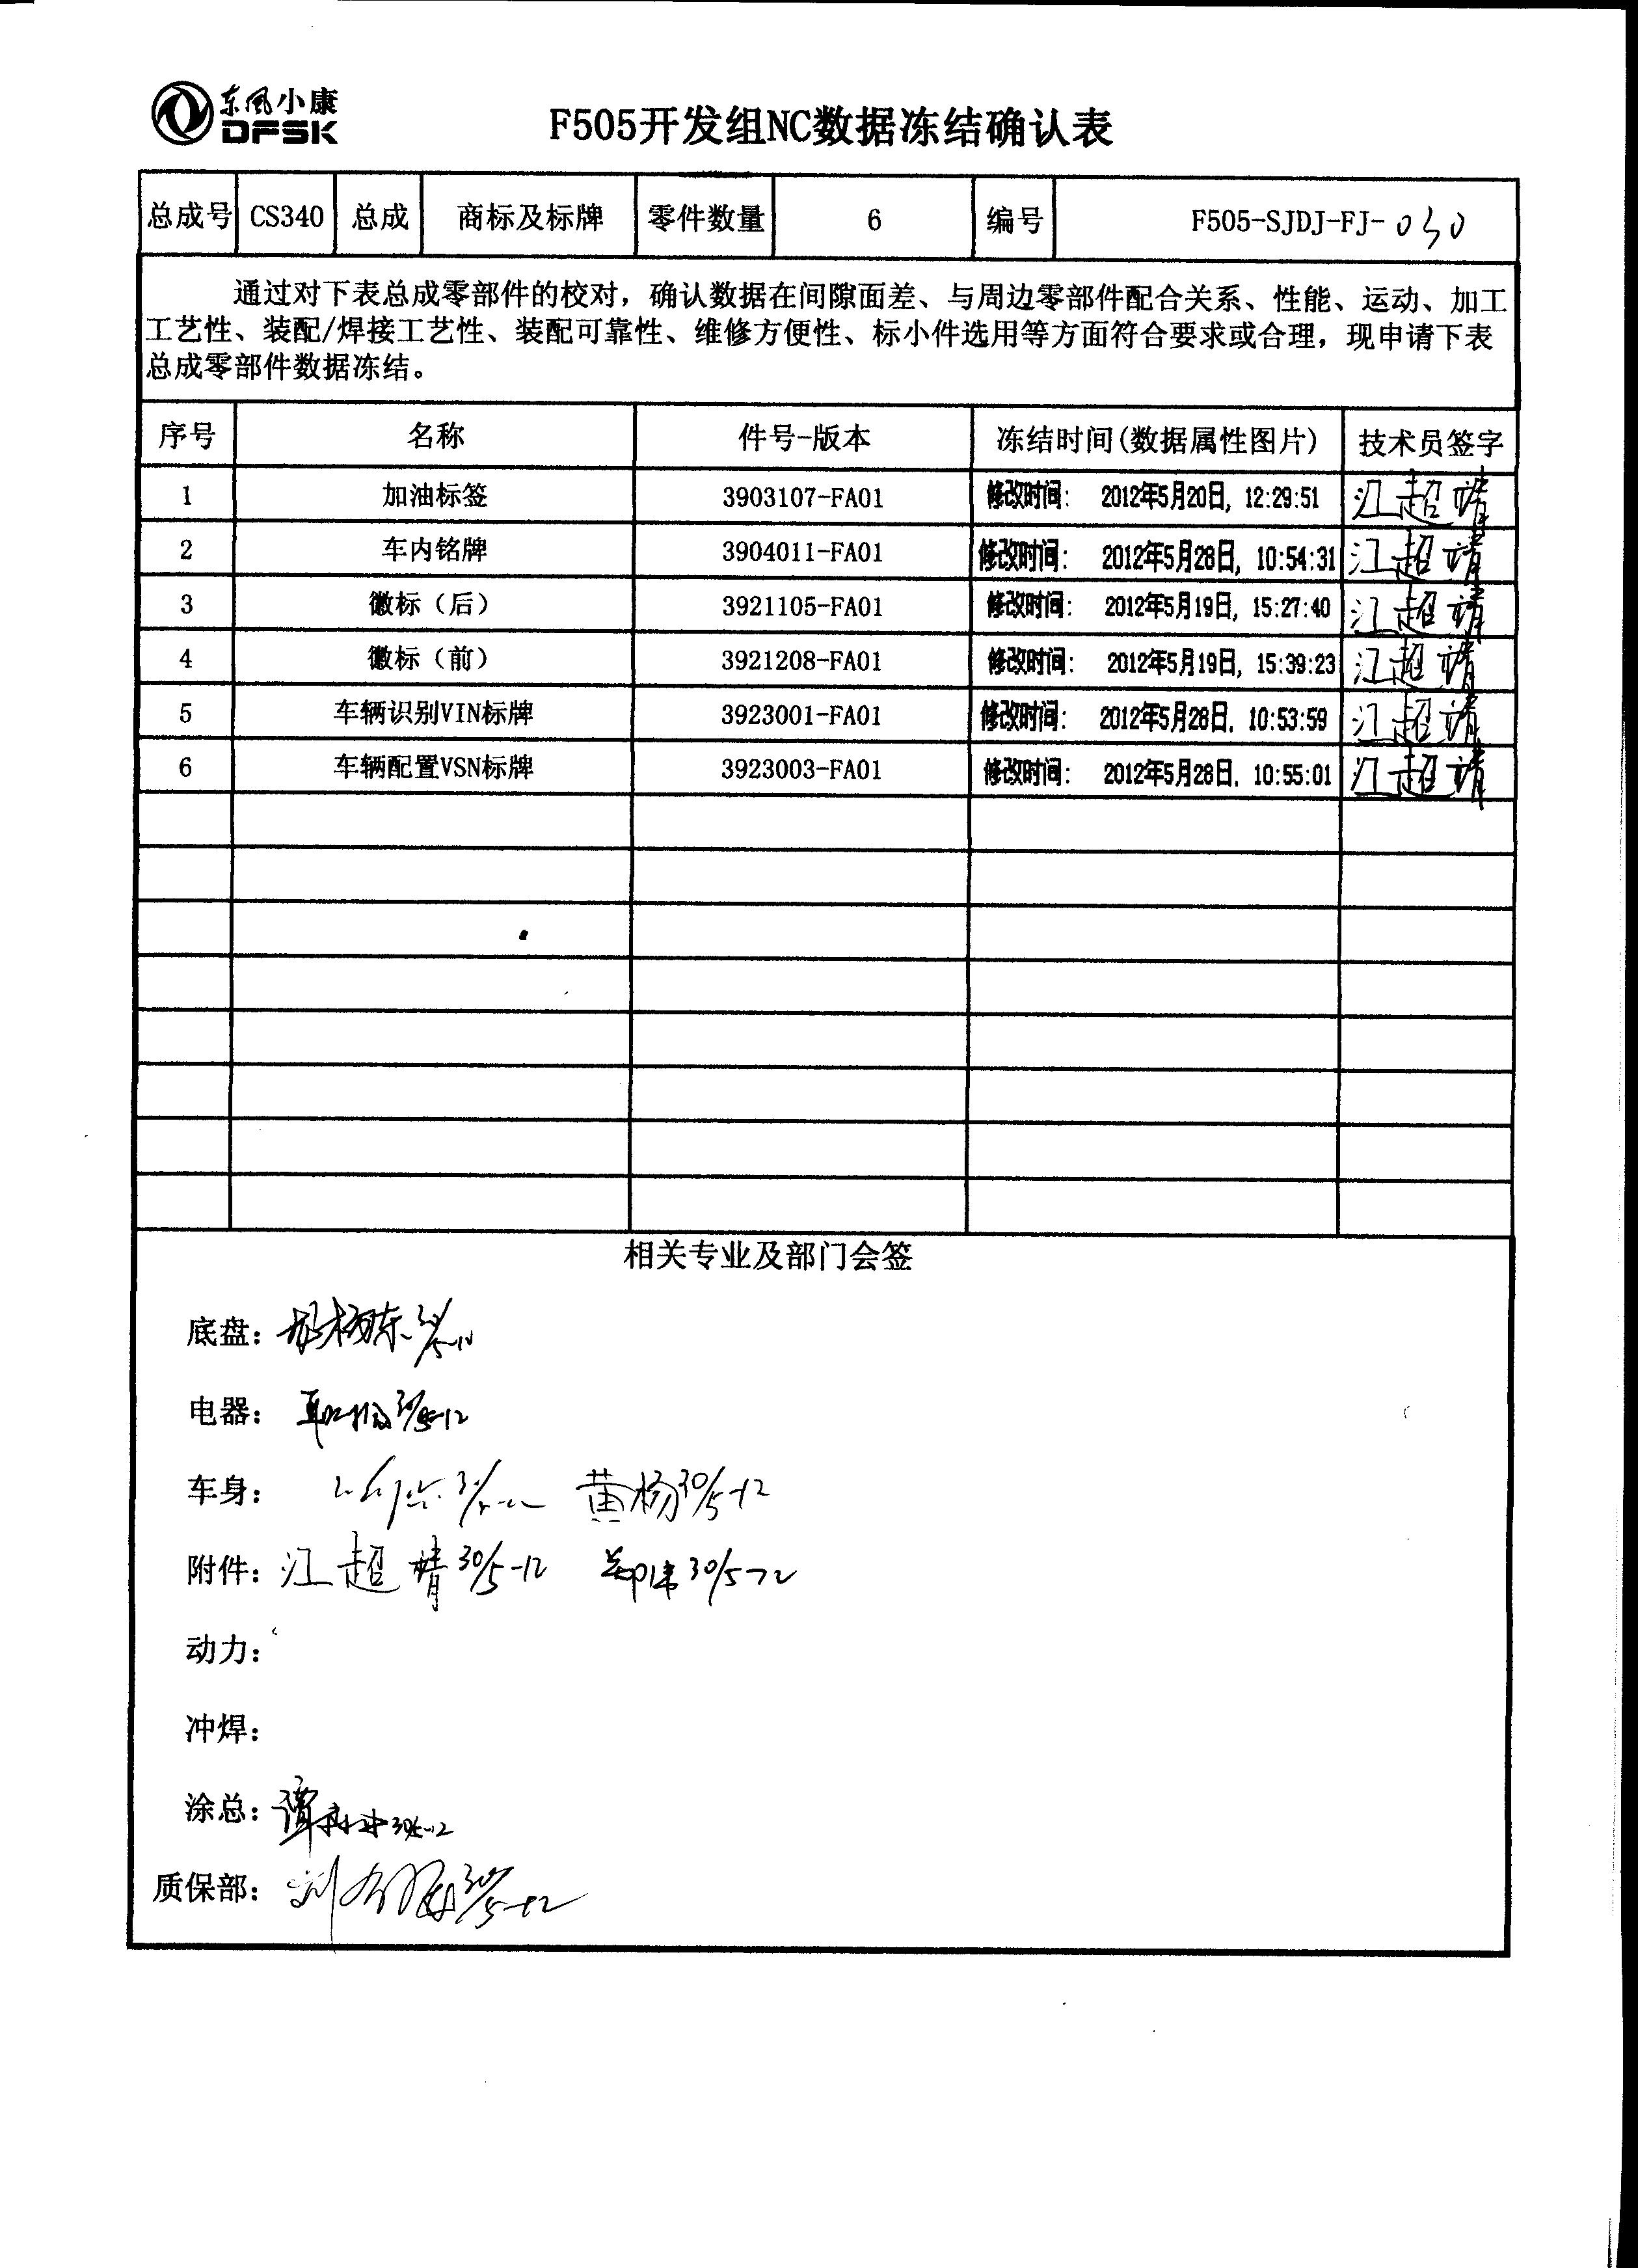 东风小康
DFSK
F505开发组NC数据冻结确认表
总成号 CS340 总成 商标及标牌 零件数量 6 编号 F505-SJDJ-FJ-030
通过对下表总成零部件的校对，确认数据在间隙面差、与周边零部件配合关系、性能、运动、加工
工艺性、装配/焊接工艺性、装配可靠性、维修方便性、标小件选用等方面符合要求或合理，现申请下表
总成零部件数据冻结。
序号 名称 件号-版本 冻结时间(数据属性图片) 技术员签字
1 加油标签 3903107-FA01 修改时间： 2012年5月20日，12:29:51 江超靖
2 车内铭牌 3904011-FA01 修改时间： 2012年5月28日，10:54:31 江超靖
3 徽标（后） 3921105-FA01 修改时间： 2012年5月19日，15:27:40 江超靖
4 徽标（前） 3921208-FA01 修改时间： 2012年5月19日，15:39:23 江超靖
5 车辆识别VIN标牌 3923001-FA01 修改时间： 2012年5月28日，10:53:59 江超靖
6 车辆配置VSN标牌 3923003-FA01 修改时间： 2012年5月28日，10:55:01 江超靖
相关专业及部门会签
底盘：
电器： 30/5-12
车身： 黄杨30/5-12
附件：江超靖30/5-12 郑伟30/5-12
动力：
冲焊：
涂总：谭 30/5-12
质保部：刘 30/5-12